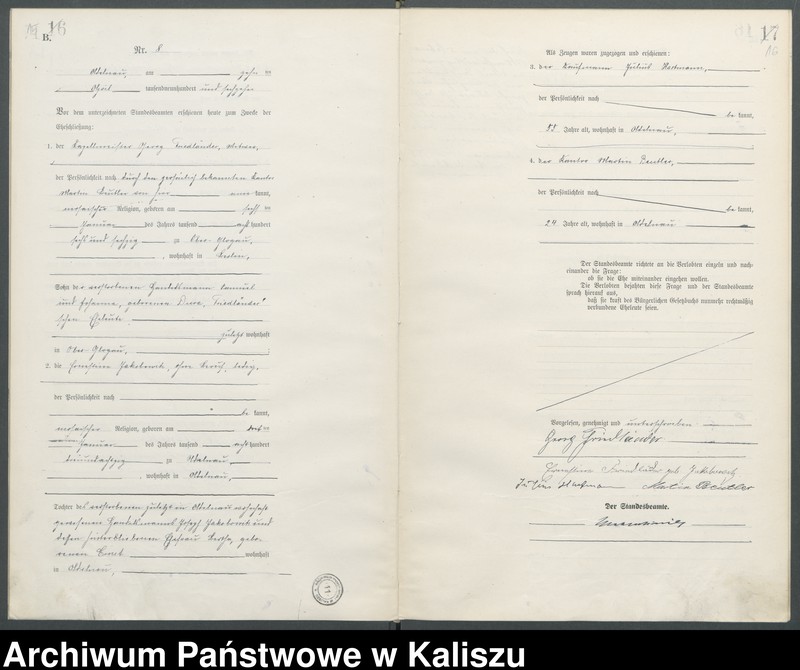 16
B.
Nr. 8
Adelnau, am zehn ten
April tausendneunhundert und sechzehn
Vor dem unterzeichneten Standesbeamten erschienen heute zum Zwecke der
Eheschließung:
1. der Kapellmeister Georg Friedländer,
der Persönlichkeit nach durch den persönlich bekannten Kantor
Martin Beutler von hier aner kannt,
mosaischer Religion, geboren am sechs ten
Januar des Jahres tausend acht hundert
sechs und sechzig zu Ober-Glogau,
, wohnhaft in Berlin,
Sohn der verstorbenen Handelsmann Samuel
und Johanna, geborenen Friedländer'
schen Eheleute
zuletzt wohnhaft
in Ober-Glogau,
2. die Ernestine Jakubowitz, ohne Beruf, ledig,
der Persönlichkeit nach
be kannt,
mosaischer Religion, geboren am ten
Januar des Jahres tausend acht hundert
dreiundachtzig zu Adelnau,
, wohnhaft in Adelnau,
Tochter des verstorbenen zuletzt in Adelnau wohnhaft
gewesenen Handelsmanns Joseph Jakubowitz und
dessen hinterbliebenen Ehefrau Bertha, gebo-
renen wohnhaft
in Adelnau,
17
Als Zeugen waren zugezogen und erschienen:
3. der Kaufmann Julius Hartmann,
der Persönlichkeit nach
be kannt,
55 Jahre alt, wohnhaft in Adelnau,
4. der Kantor Martin Beutler,
der Persönlichkeit nach
be kannt,
24 Jahre alt, wohnhaft in Adelnau
Der Standesbeamte richtete an die Verlobten einzeln und nach-
einander die Frage:
ob sie die Ehe miteinander eingehen wollen.
Die Verlobten bejahten diese Frage und der Standesbeamte
sprach hierauf aus,
daß sie kraft des Bürgerlichen Gesetzbuchs nunmehr rechtmäßig
verbundene Eheleute seien.
Vorgelesen, genehmigt und unterschrieben
Georg Friedländer
Ernestine Friedländer geb Jakubowitz
Julius Hartmann Martin Beutler
Der Standesbeamte.
11
Archiwum Państwowe w Kaliszu